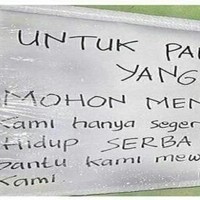 UNTUK PA
YANG
MOHON MEN
Kami hanya seger
Hidup SERBA
bantu kami mew
Kami